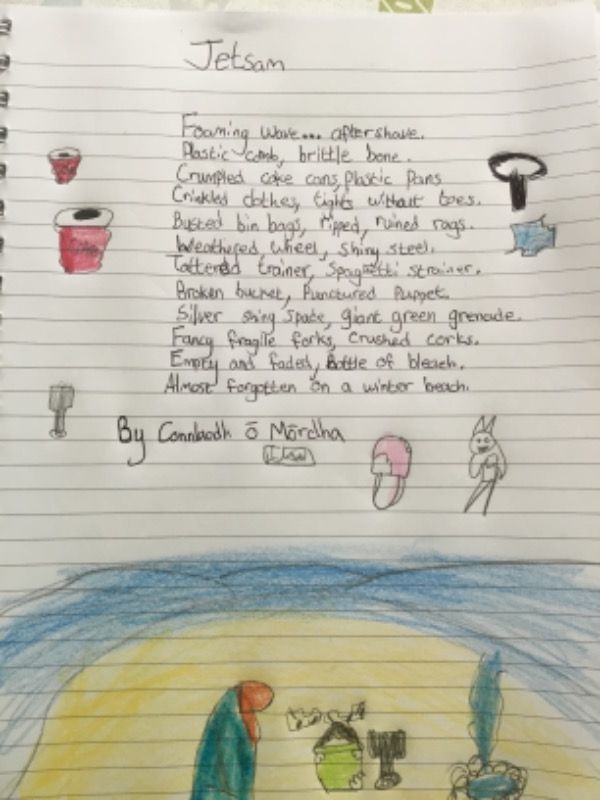 Jetsam
Foaming wave... aftershave.
Plastic comb, brittle bone.
Crumpled coke cans, Plastic Pans
Crinkled clothes, tights without toes.
Busted bin bags, ripped, ruined rags.
Weathered, wheel, shiny steel.
Tattered trainer, Spaghetti strainer.
Broken bucket, Punctured Puppet.
Silver shiny spade, giant green grenade.
Fancy fragile forks, crushed corks.
Empty and faded, bottle of bleach.
Almost forgotten on a winter beach.
By Connlaodh ō Mōrdha